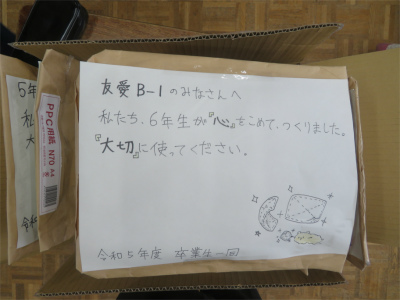 友愛B-1のみなさんへ
私たち、6年生が『心』をこめて、つくりました。
『大切』に使ってください。
令和5年度 卒業生一同
PPC用紙 N70 A4
5年
私
大
令和